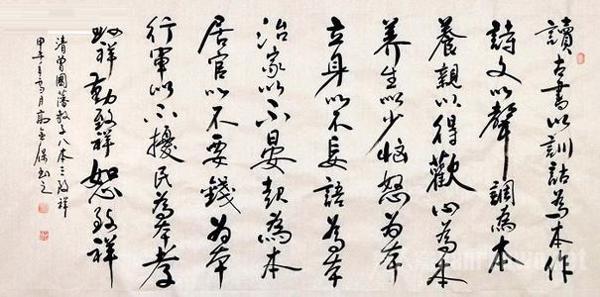 讀古書以訓詁為本作
詩文以聲調為本
養親以得歡心為本
养生以少恼怒为本
立身以不妄語為本
治家以不晏起為本
居官以不要錢为本
行軍以不擾民為本孝
致祥勤致祥恕致祥
清曾國藩教子八本三致祥
甲午